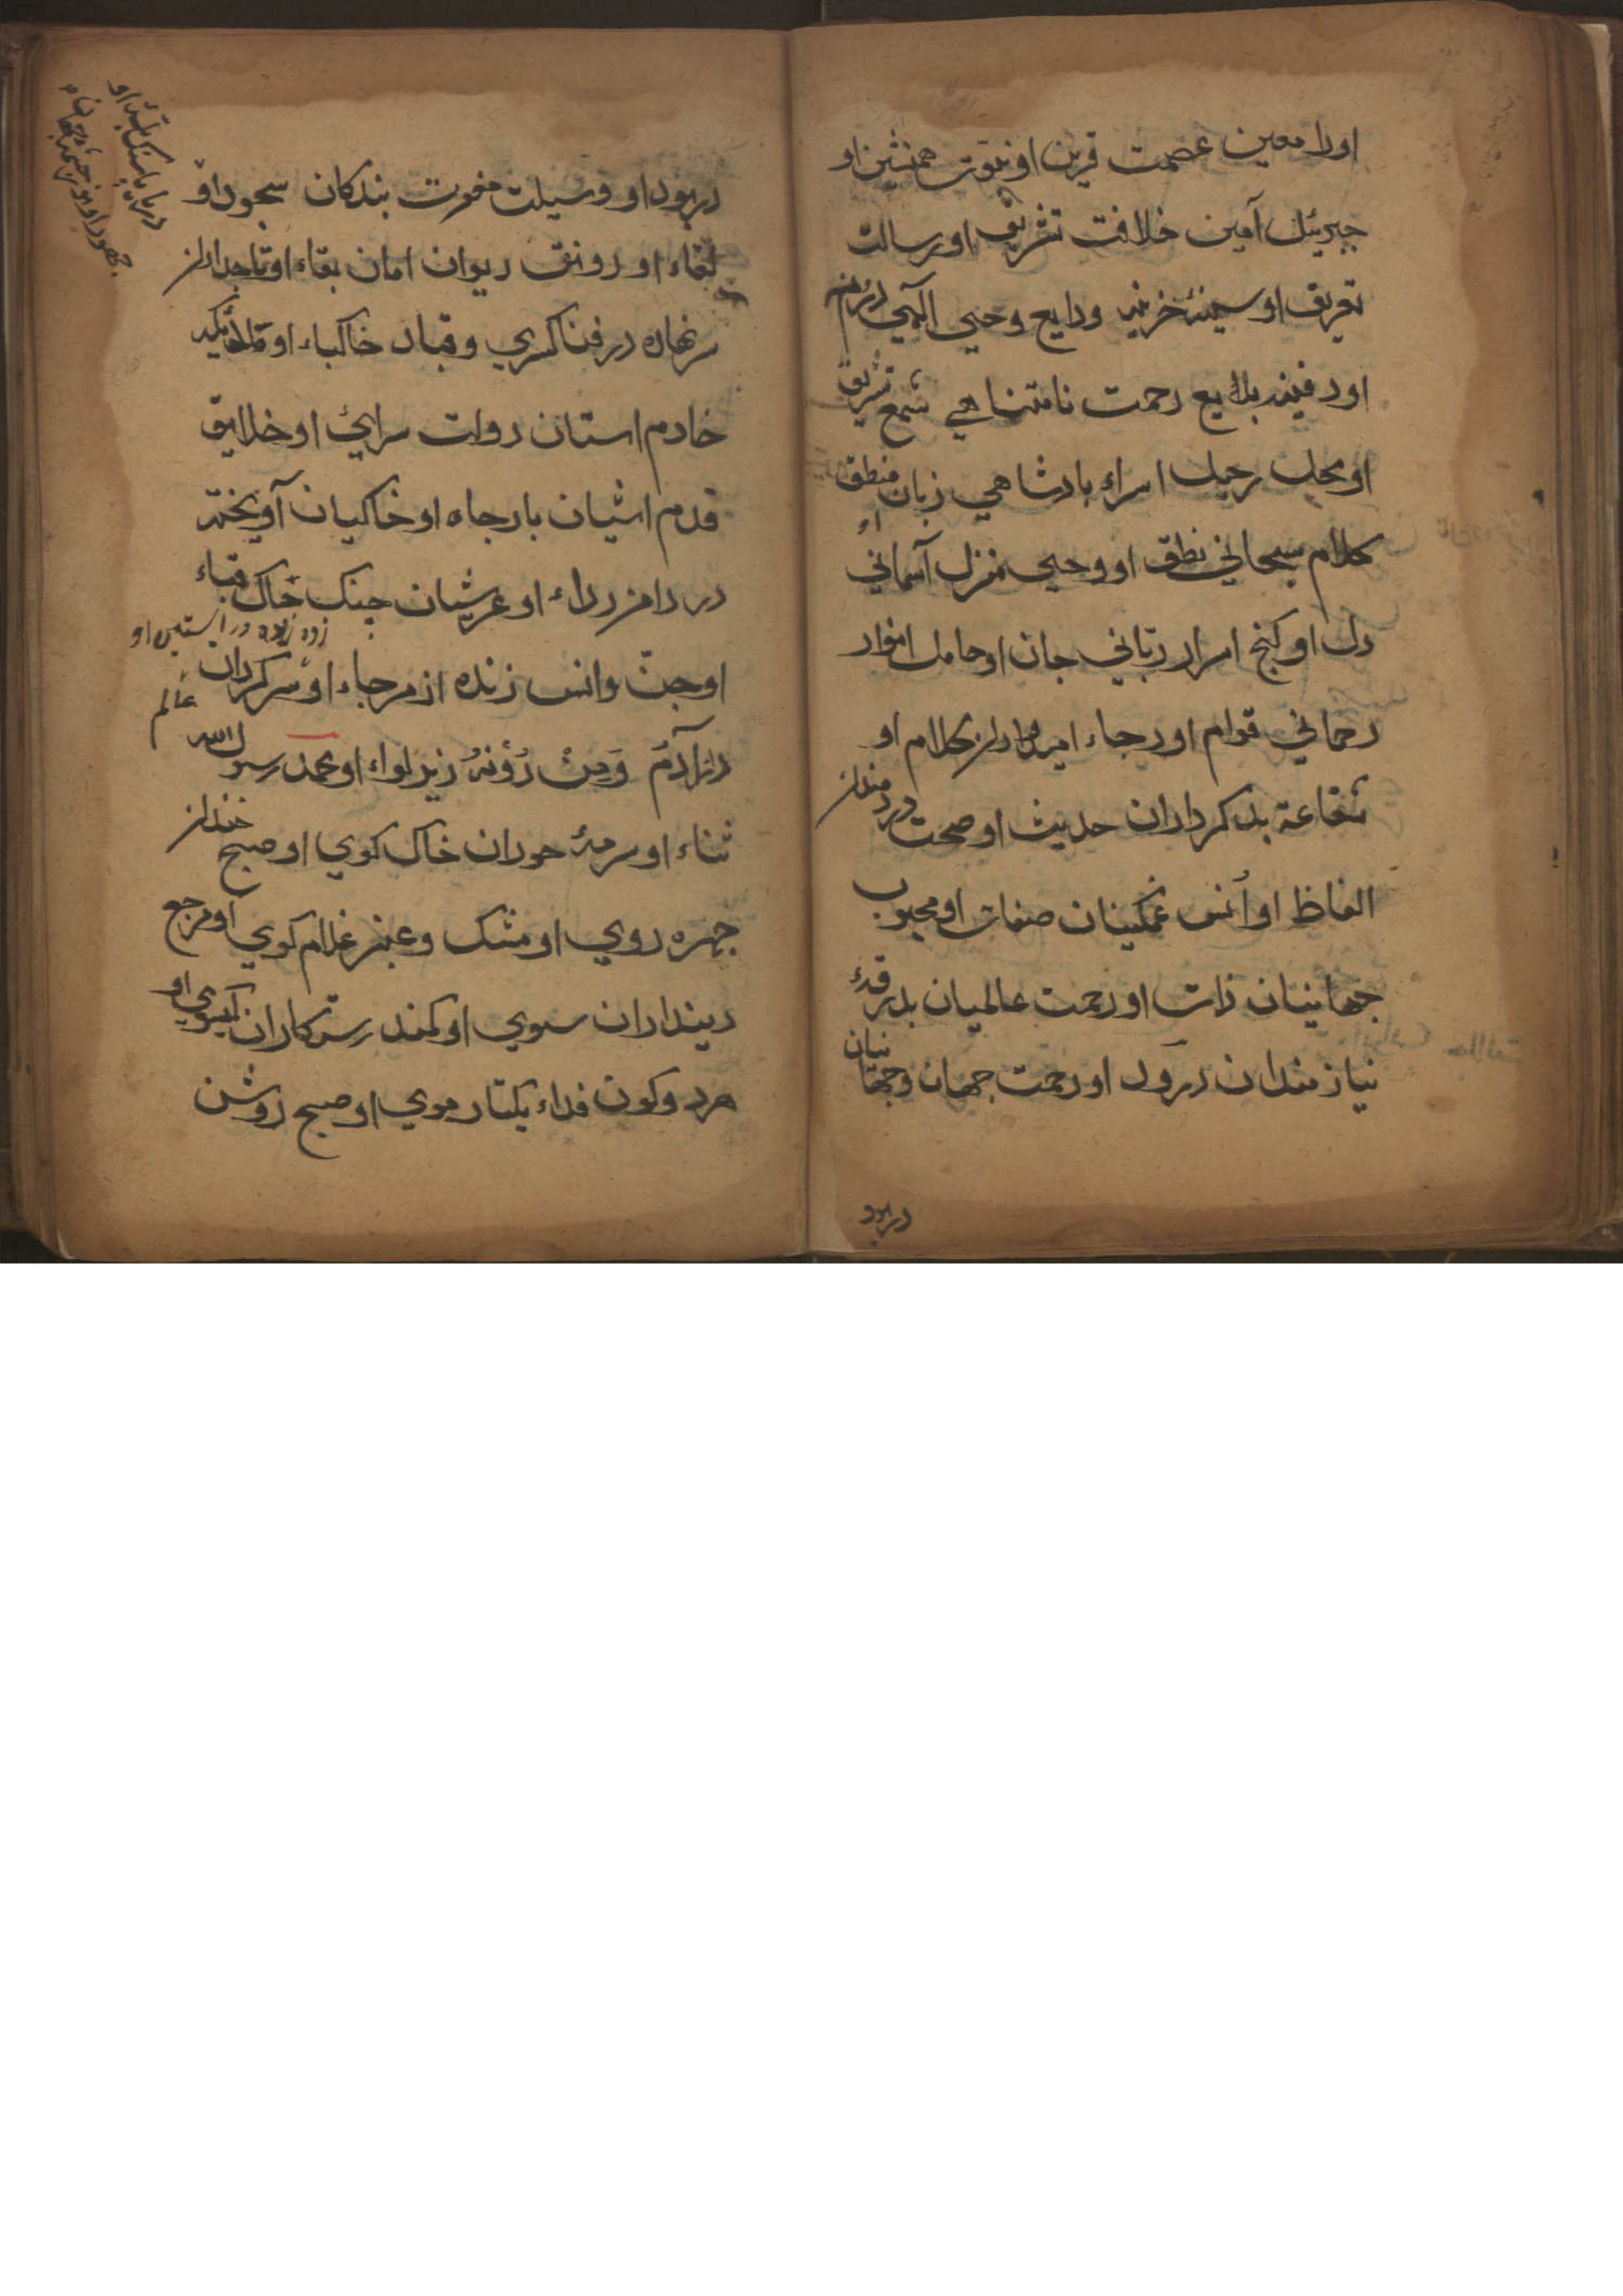 اورا معین عصمت قرین او نبوت همنشین او
جبرئیل آمین خلافت تشریف او رسالت
تعریف او سینهٔ خزینه ودایع وحی الهی
او دفینه بدایع رحمت نامتناهی شمع شریف
او محل رحیل اسراء بادشاهی زبان منطق
کلام سبحانی نطق او وحی منزل آسمانی
دل او کنج اسرار ربّانی جان او حامل انوار
رحمانی قوام او رجاء امیدواران کلام او
شفاعة بدکرداران حدیث او صحت دردمندان
الفاظ او اُنس غمکینان صفات او محبوب
جهانیان ذات او رحمت عالمیان بدرقهٔ
نیازمندان درود او رحمت جهان وجهانیان
دربود
دربود او وسیلت مغفرت بندکان سجود او
لقاء او رونق دیوان امان بقاء او تاجداران
سر نهاده در فنا کسری وقباد خاکباء او
خادم استان دولت سرائ او خلایق
قدم اشیان بارجاه او خاکیان آویخته
در دامن رداء او عرشیان جنک خاک قباء
زده در استین او
او جنّ وانس زنده از مرجاء او سرکردان
عالم
آدَم وَمِنْ دُوْنَهُ زیر لواء او محمد رسول الله
ثناء او سرمهٔ حوران خاک کوی او صبح خندان
جهره روی او مشک وعنبر غلام کوی او مرجع
دینداران سوی او کمند رستکاران کیسوی او
هر دو کون فداء یکتار موی او صبح روشن